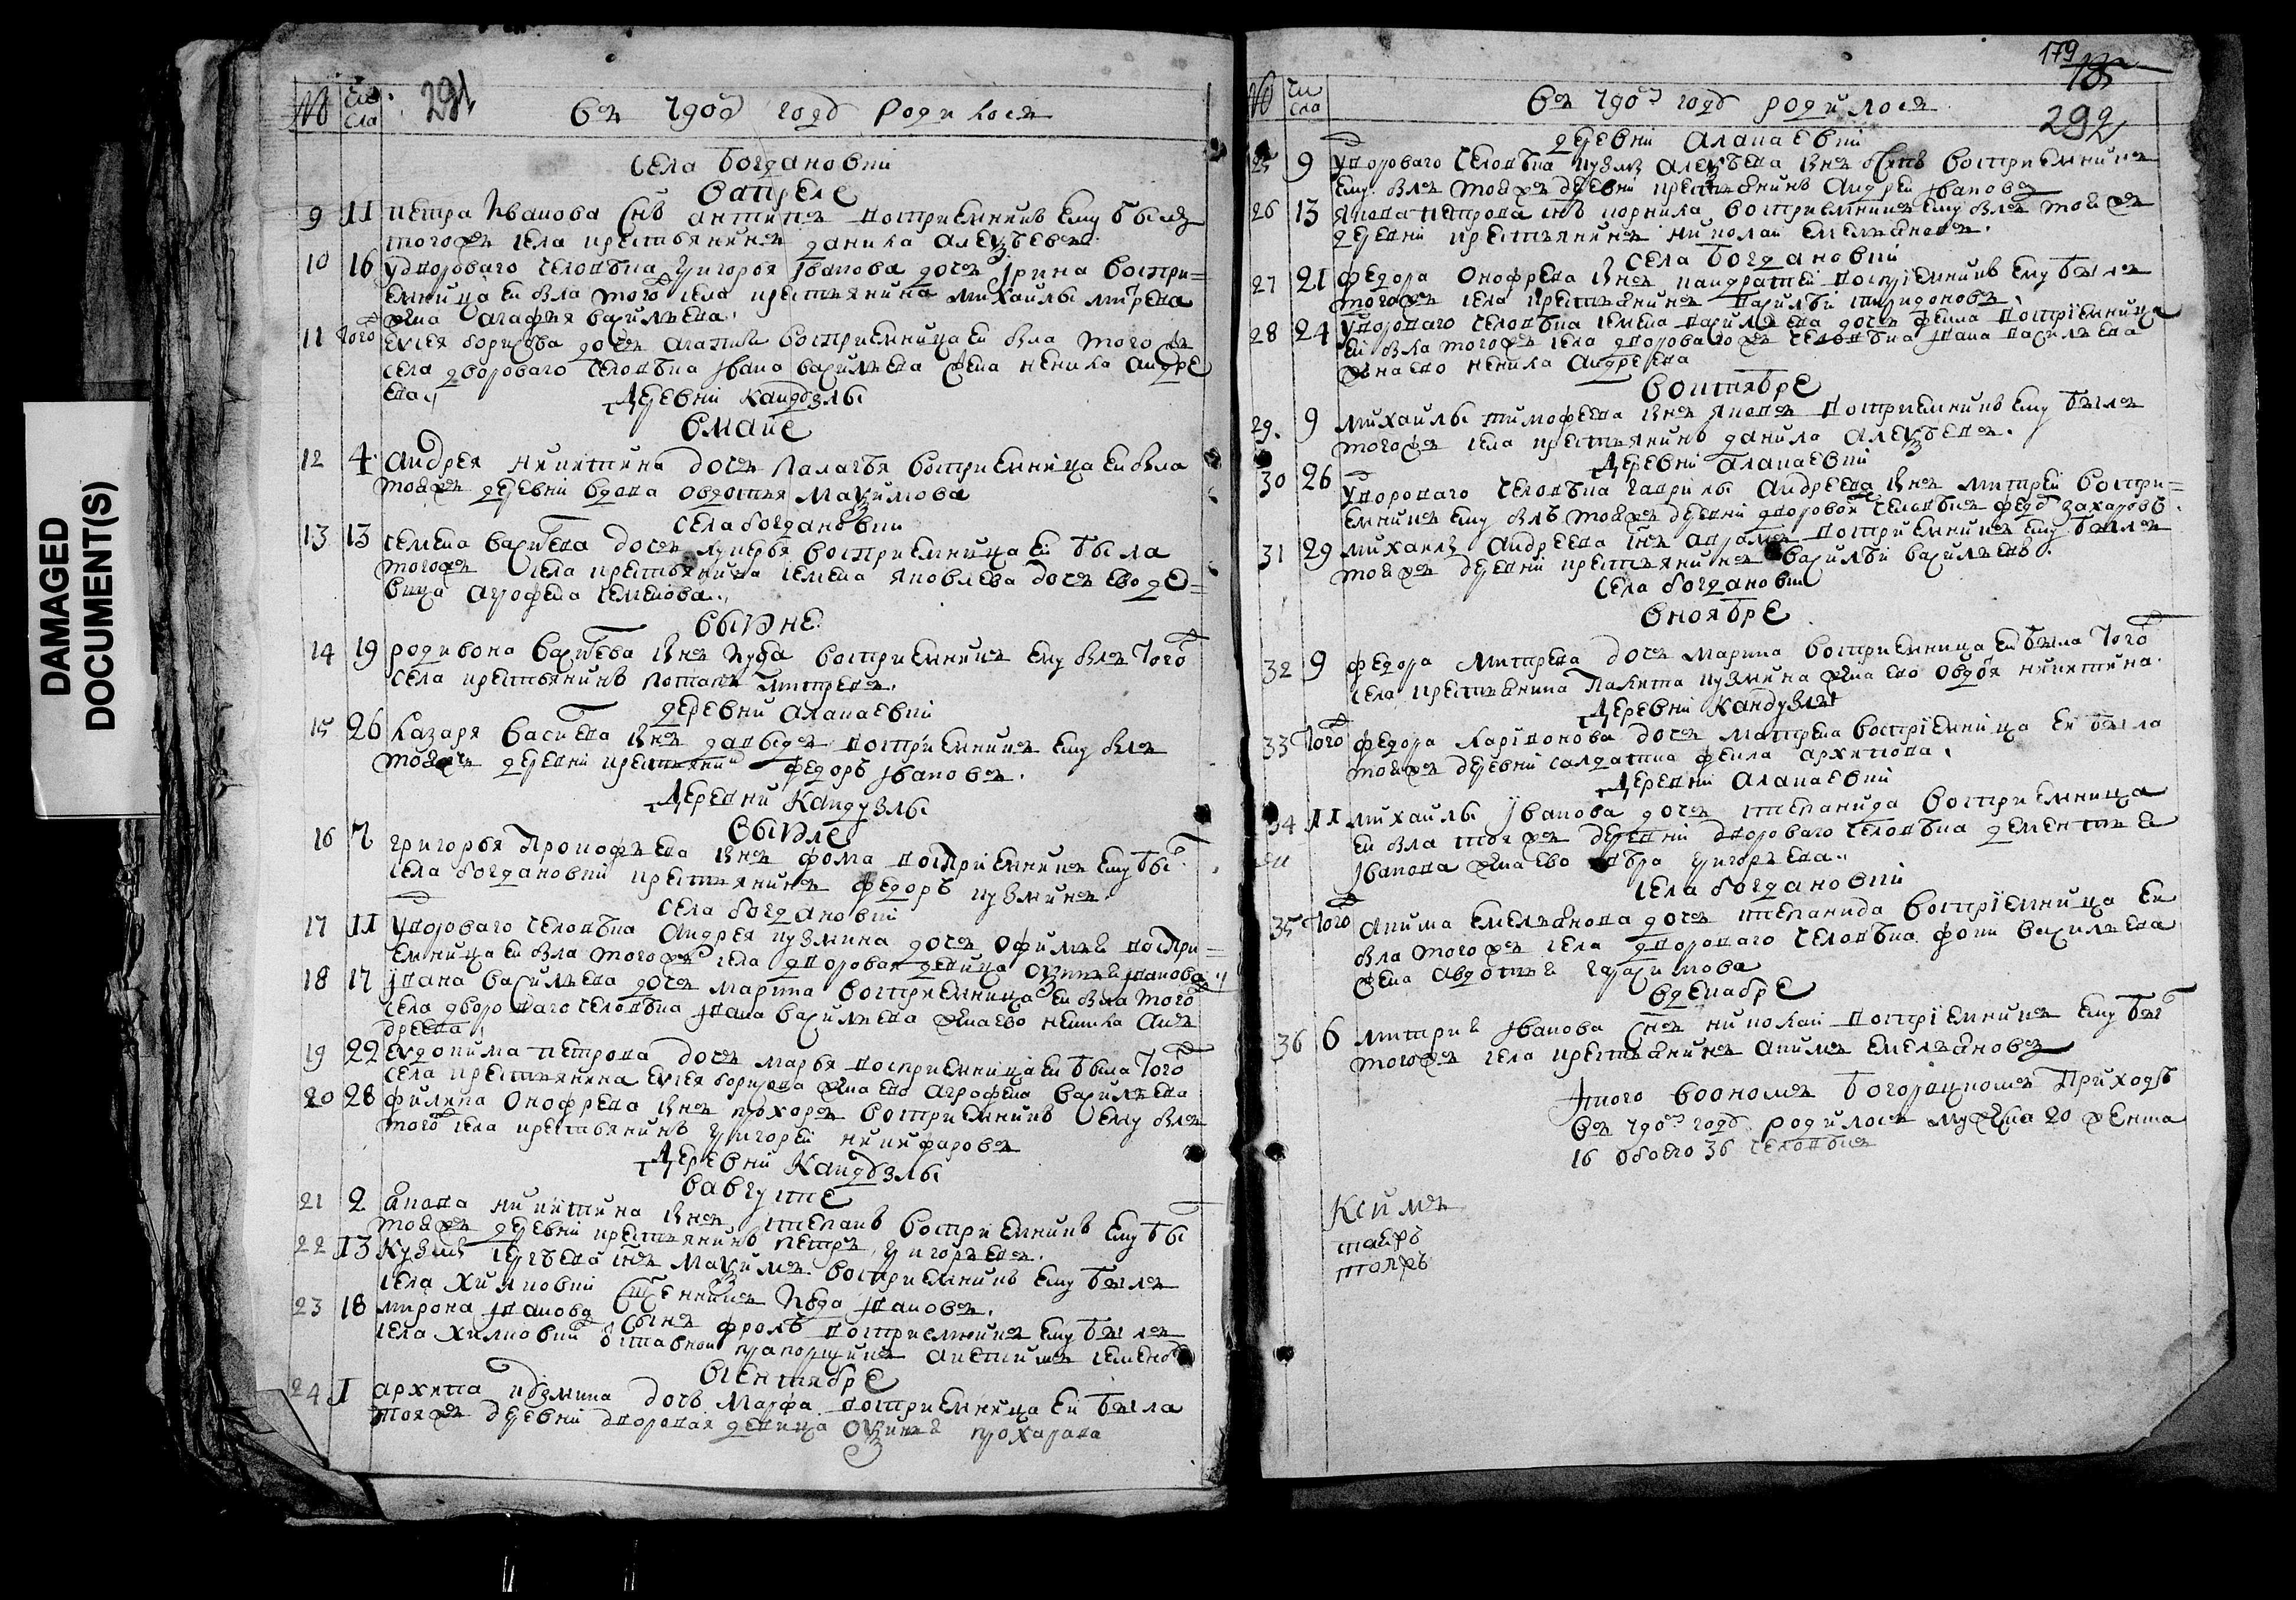 DAMAGED
DOCUMENT(S)
№ Чи
сла 291 Въ 790м годѣ родилося
села Богдановки
въ апреле
9 11 петра Иванова снъ антипъ восприемникъ ему былъ
тогожъ села крестьянинъ данила Алексѣевъ
10 16 у дворового человѣка григорья Иванова дочь Ирина воспри=
емница ей была того села крестьянина михаилы митрева
жена агафья василиева
11 того Евсея борисова дочь восприемница ей была тогожъ
села дворового человѣка Ивана василиева жена ненила Андре
ева
Деревни Кандузлы
в маие
12 4 Андрея никитина дочь Палагѣя восприемница ей была
тояжъ деревни вдова овдотия Максимова
села богдановки
13 13 семена васильева дочь лукерья восприемница ей была
тогожъ села крестьянина семена яковлева дочь ево де=
вица агрофена семенова
в ыюне
14 19 родивона васильева снъ восприемникъ ему былъ того
села крестьянинъ потапъ митревъ
деревни алапаевки
15 26 лазаря василева снъ давыдъ восприемникъ ему былъ
тояжъ деревни крестянинъ федоръ Ивановъ
Деревни Кандузлы
в ыюле
16 7 григорья Прокофьева снъ фома восприемникъ ему бы
села богдановки крестьянинъ федоръ кузминъ
села богдановки
17 11 у дворового человѣка Андрея кузмина дочь Офимия воспри=
емница ей была тогожъ села дворовая девица Оксиния Иванова
18 17 Ивана василиева дочь марина восприемница ей была того
села дворового человѣка Ивана василиева жена ево ненила Ан
дреева
19 22 Евдокима петрова дочь марья восприемница ей была того
села крестьянина Евсея борисова жена ево агрофена василиева
20 28 филипа Онофрева снъ прохоръ восприемникъ ему былъ
того села крестьянинъ григорей никифоровъ
Деревни Кандузлы
в августе
21 2 якова никитина снъ степанъ восприемникъ ему бы
тояжъ деревни крестьянинъ петръ григорьевъ
22 13 Кузмы сергѣева снъ Максимъ восприемникъ ему былъ
села Хилковки священникъ Ивановъ
23 18 мирона Иванова сынъ фролъ восприемникъ ему былъ
села Хилковки отставной прапорщикъ анстимъ семенов
в сентябре
24 1 архипа кузмина дочь Марфа восприемница ей была
тояжъ деревни дворовая девица Оксиния прохарова
179
292
№ Чи
сла Въ 790м годѣ родилося
деревни Алапаевки
25 9 у дворового человѣка кузмы алексѣева снъ восприемникъ
ему былъ тояжъ деревни крестьянинъ Андрей Ивановъ
26 13 якова петрова снъ корнила восприемникъ ему былъ тояжъ
деревни крестьянинъ николай емельяновъ
села Богдановки
27 21 федора Онофрева снъ кандратей восприемникъ ему былъ
тогожъ села крестьянинъ василѣй спиридоновъ
28 24 у дворового человѣка семена василиева дочь фекла восприемница
ей была тогожъ села дворового человѣка Ивана василиева
жена ево ненила Андреева
в октябре
29 9 михаилы тимофеева снъ яковъ восприемникъ ему былъ
тогожъ села крестьянинъ данила Алексѣевъ
Деревни алапаевки
30 26 у дворового человѣка гаврилы Андреева снъ митрей воспри=
емникъ ему былъ тояжъ деревни дворовой человѣкъ федр захаровъ
31 29 михаилы Андреева снъ аврамъ восприемникъ ему былъ
тояжъ деревни крестьянинъ василѣй василиевъ
села богдановки
в ноябре
32 9 федора митрева дочь марина восприемница ей была того
села крестьянина кузмина жена ево никитина
Деревни Кандузлы
33 того федора ларионова дочь матрена восприемница ей была
тояжъ деревни салдатка фекла архипова
Деревни Алапаевки
34 11 михаилы Иванова дочь степанида восприемница
ей была тояжъ деревни дворового человѣка дементия
Иванова жена ево григорьева
села богдановки
35 того акима емельянова дочь степанида восприемница ей
была тогожъ села дворового человѣка фоки василиева
жена авдотия гарасимова
в декабре
36 6 митрия Иванова снъ николай восприемникъ ему бы
тогожъ села крестьянинъ акимъ емельяновъ
Итого во ономъ богородцкомъ Приходѣ
въ 790м годѣ родилося мужеска 20 женска
16 обоего 36 человѣкъ